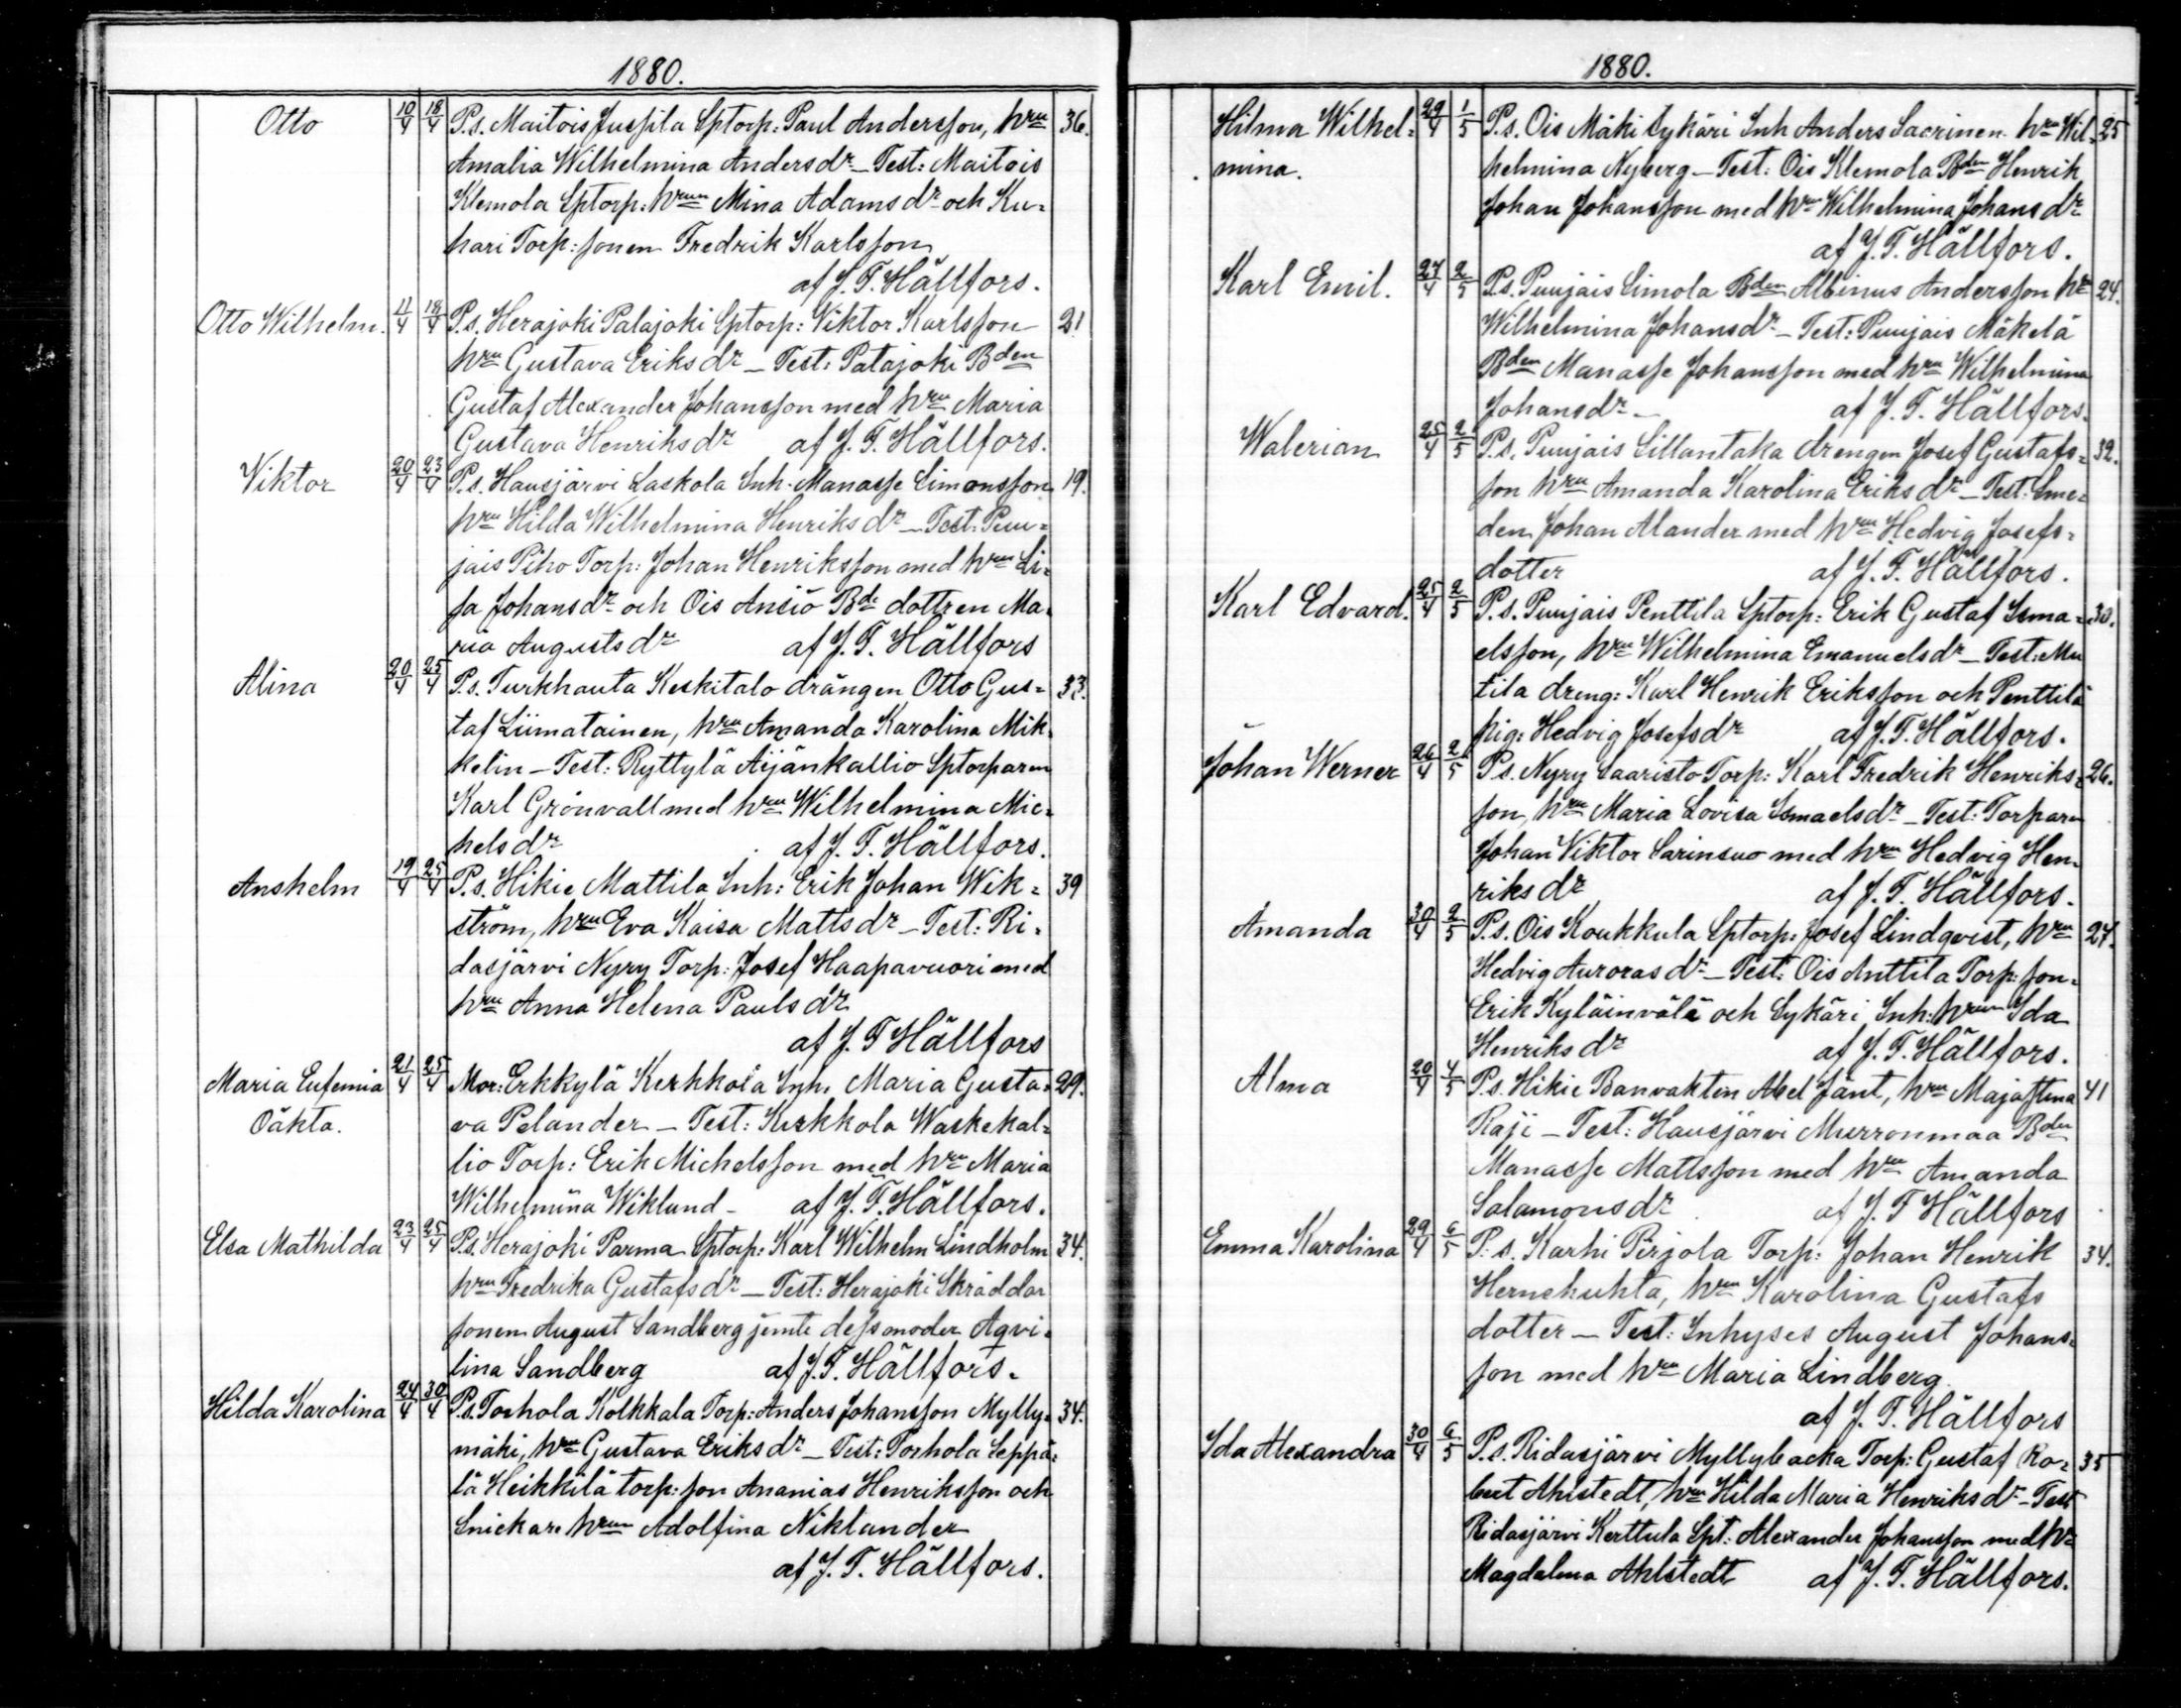 1880.
Otto 10/4 18/4 P.s. Maitois Jussila Sptorp: Paul Andersson, hru 36.
Amalia Wilhelmina Andersdr – Test: Maitois
Klemola Sptorp: hrun Mina Adamsdr och Ku=
hari Torp: sonen Fredrik Karlsson
af J. F. Hällfors.
Otto Wilhelm. 11/4 18/4 P.s. Herajoki Palajoki Sptorp: Viktor Karlsson 21
hru Gustava Eriksdr – Test: Patajoki Bden
Gustaf Alexander Johansson med hru Maria
Gustava Henriksdr af J. F. Hällfors.
Viktor 20/4 23/4 P.s. Hausjärvi Laskola Inh. Manasse Simonsson 19.
hru Hilda Wilhelmina Henriksdr – Test: Puu=
jais Piho Torp: Johan Henriksson med hru Li=
sa Johansdr och Ois Ansio Bde dottren Ma=
ria Augustsdr af J. F. Hällfors
Alina 20/4 25/4 P.s. Turkhauta Keskitalo drängen Otto Gus= 33.
taf Liimatainen, hru Amanda Karolina Mik=
kelin – Test: Ryttylä Äijänkallio Sptorparen
Karl Grönvall med hru Wilhelmina Mic=
helsdr af J. F. Hällfors.
Anshelm 19/4 25/4 P.s. Hikie Mattila Inh: Erik Johan Wik= 39
ström, hru Eva Kaisa Mattsdr – Test: Ri=
dasjärvi Nyry Torp: Josef Haapavuori med
hru Anna Helena Paulsdr
af J. F Hällfors
Maria Eufemia 21/4 25/4 Mor: Erkkylä Kerkkola Inh. Maria Gusta= 29.
Oäkta. va Pelander – Test: Kerkkola Waskekal=
lio Torp: Erik Michelsson med hru Maria
Wilhelmina Wiklund – af J. F. Hällfors.
Elsa Mathilda 23/4 25/4 P.s. Herajoki Parma Sptorp: Karl Wilhelm Lindholm 34.
hru Fredrika Gustafsdr – Test: Herajoki Skräddar
sonen August Sandberg jemte dess moder Aqvi=
lina Sandberg af J. F. Hällfors.
Hilda Karolina 24/4 30/4 P.s. Torhola Kolkkala Torp: Anders Johansson Mylly= 34.
mäki, hru Gustava Eriksdr – Test: Torhola Seppä=
lä Heikkilä torp: son Ananias Henriksson och
Snickare hrun Adolfina Niklander
af J. F. Hällfors.
1880.
Hilma Wilhel= 29/4 1/5 P.s. Ois Mäki Sykäri Inh Anders Saarinen hru Wil= 25
mina. helmina Nyberg – Test: Ois Klemola Bden Henrik
Johan Johansson med hru Wilhelmina Johansdr
af J. F. Hällfors.
Karl Emil. 27/4 2/5 P.s. Puujais Simola Bden Albinus Andersson hr 24.
Wilhelmina Johansdr – Test: Puujais Mäkelä
Bden Manasse Johansson med hru Wilhelmina
Johansdr – af J. F. Hällfors.
Walerian 25/4 2/5 P.s. Puujais Sillantaka drengen Josef Gustafs= 32.
son hru Amanda Karolina Eriksdr – Test: Sme=
den Johan Alander med hru Hedvig Josefs=
dotter af J. F. Hällfors.
Karl Edvard. 25/4 2/5 P.s. Puujais Penttila Sptorp: Erik Gustaf Isma= 30.
elsson, hru Wilhelmina Emanuelsdr – Test: Mu
tila dreng: Karl Henrik Eriksson och Penttilä
pig: Hedvig Josefsdr af J. F. Hällfors.
Johan Werner 26/4 2/5 P.s. Nyry Saaristo Torp: Karl Fredrik Henriks= 26.
son, hru Maria Lovisa Ismaelsdr – Test: Torparen
Johan Viktor Sarinsuo med hru Hedvig Hen=
riksdr af J. F. Hällfors.
Amanda 30/4 2/5 P.s. Ois Koukkula Sptorp: Josef Lindqvist, hru 27.
Hedvig Aurorasdr – Test: Ois Anttila Torp: son
Erik Kyläinvälä och Sykäri Inh: hrun Ida
Henriksdr af J. F. Hällfors.
Alma 20/4 4/5 P.s. Hikie Banvakten Abel Jänt, hru Majastina 41
Raji – Test: Hausjärvi Murronmaa Bden
Manasse Mattsson med hru Amanda
Salamonsdr af J. F Hällfors
Emma Karolina 29/4 6/5 P.s. Karhi Pirjola Torp: Johan Henrik 34.
Hernehuhta, hru Karolina Gustafs
dotter – Test: Inhyses August Johans=
son med hru Maria Lindberg.
af J. F. Hällfors
Ida Alexandra 30/4 6/5 P.s. Ridasjärvi Myllybacka Torp: Gustaf Ro= 35
bert Ahlstedt, hru Hilda Maria Henriksdr – Test
Ridasjärvi Kerttula Spt: Alexander Johansson med hr
Magdalena Ahlstedt af J. F. Hällfors.